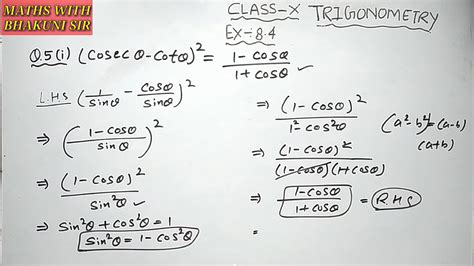 MATHS WITH
BHAKUNI SIR
CLASS-X TRIGONOMETRY
EX-8.4
Q.5(i) (cosec θ - cotθ)² = (1 - cosθ)/(1 + cosθ) ✓
L.H.S (1/sinθ - cosθ/sinθ)²
⇒ ((1 - cosθ)/sinθ)²
⇒ (1 - cosθ)²/sin²θ ✓
⇒ sin²θ + cos²θ = 1
sin²θ = 1 - cos²θ
⇒ (1 - cosθ)²/(1² - cos²θ)
(a² - b²) = (a-b)
(a+b)
⇒ (1 - cosθ)²/((1 - cosθ)(1 + cosθ))
⇒ (1 - cosθ)/(1 + cosθ) = R.H.S
=